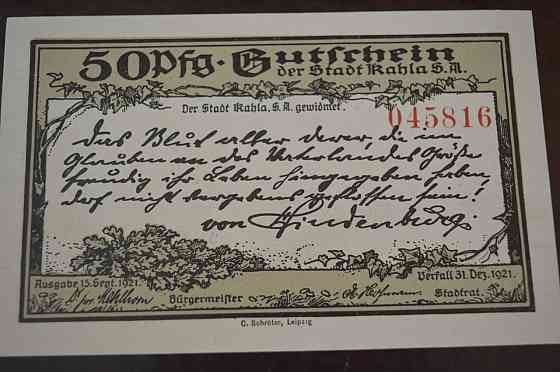 50 Pfg. Gutschein
der Stadt Kahla S.A.
Der Stadt Kahla, S.A. gewidmet.
045816
Das Blut aller derer, die im
Glauben an des Vaterlandes Größe
freudig ihr Leben hingegeben haben,
darf nicht vergebens geflossen sein!
von Hindenburg.
Ausgabe 15. Sept. 1921.
Verfall 31. Dez. 1921.
Bürgermeister
Stadtrat.
C. Schröter, Leipzig